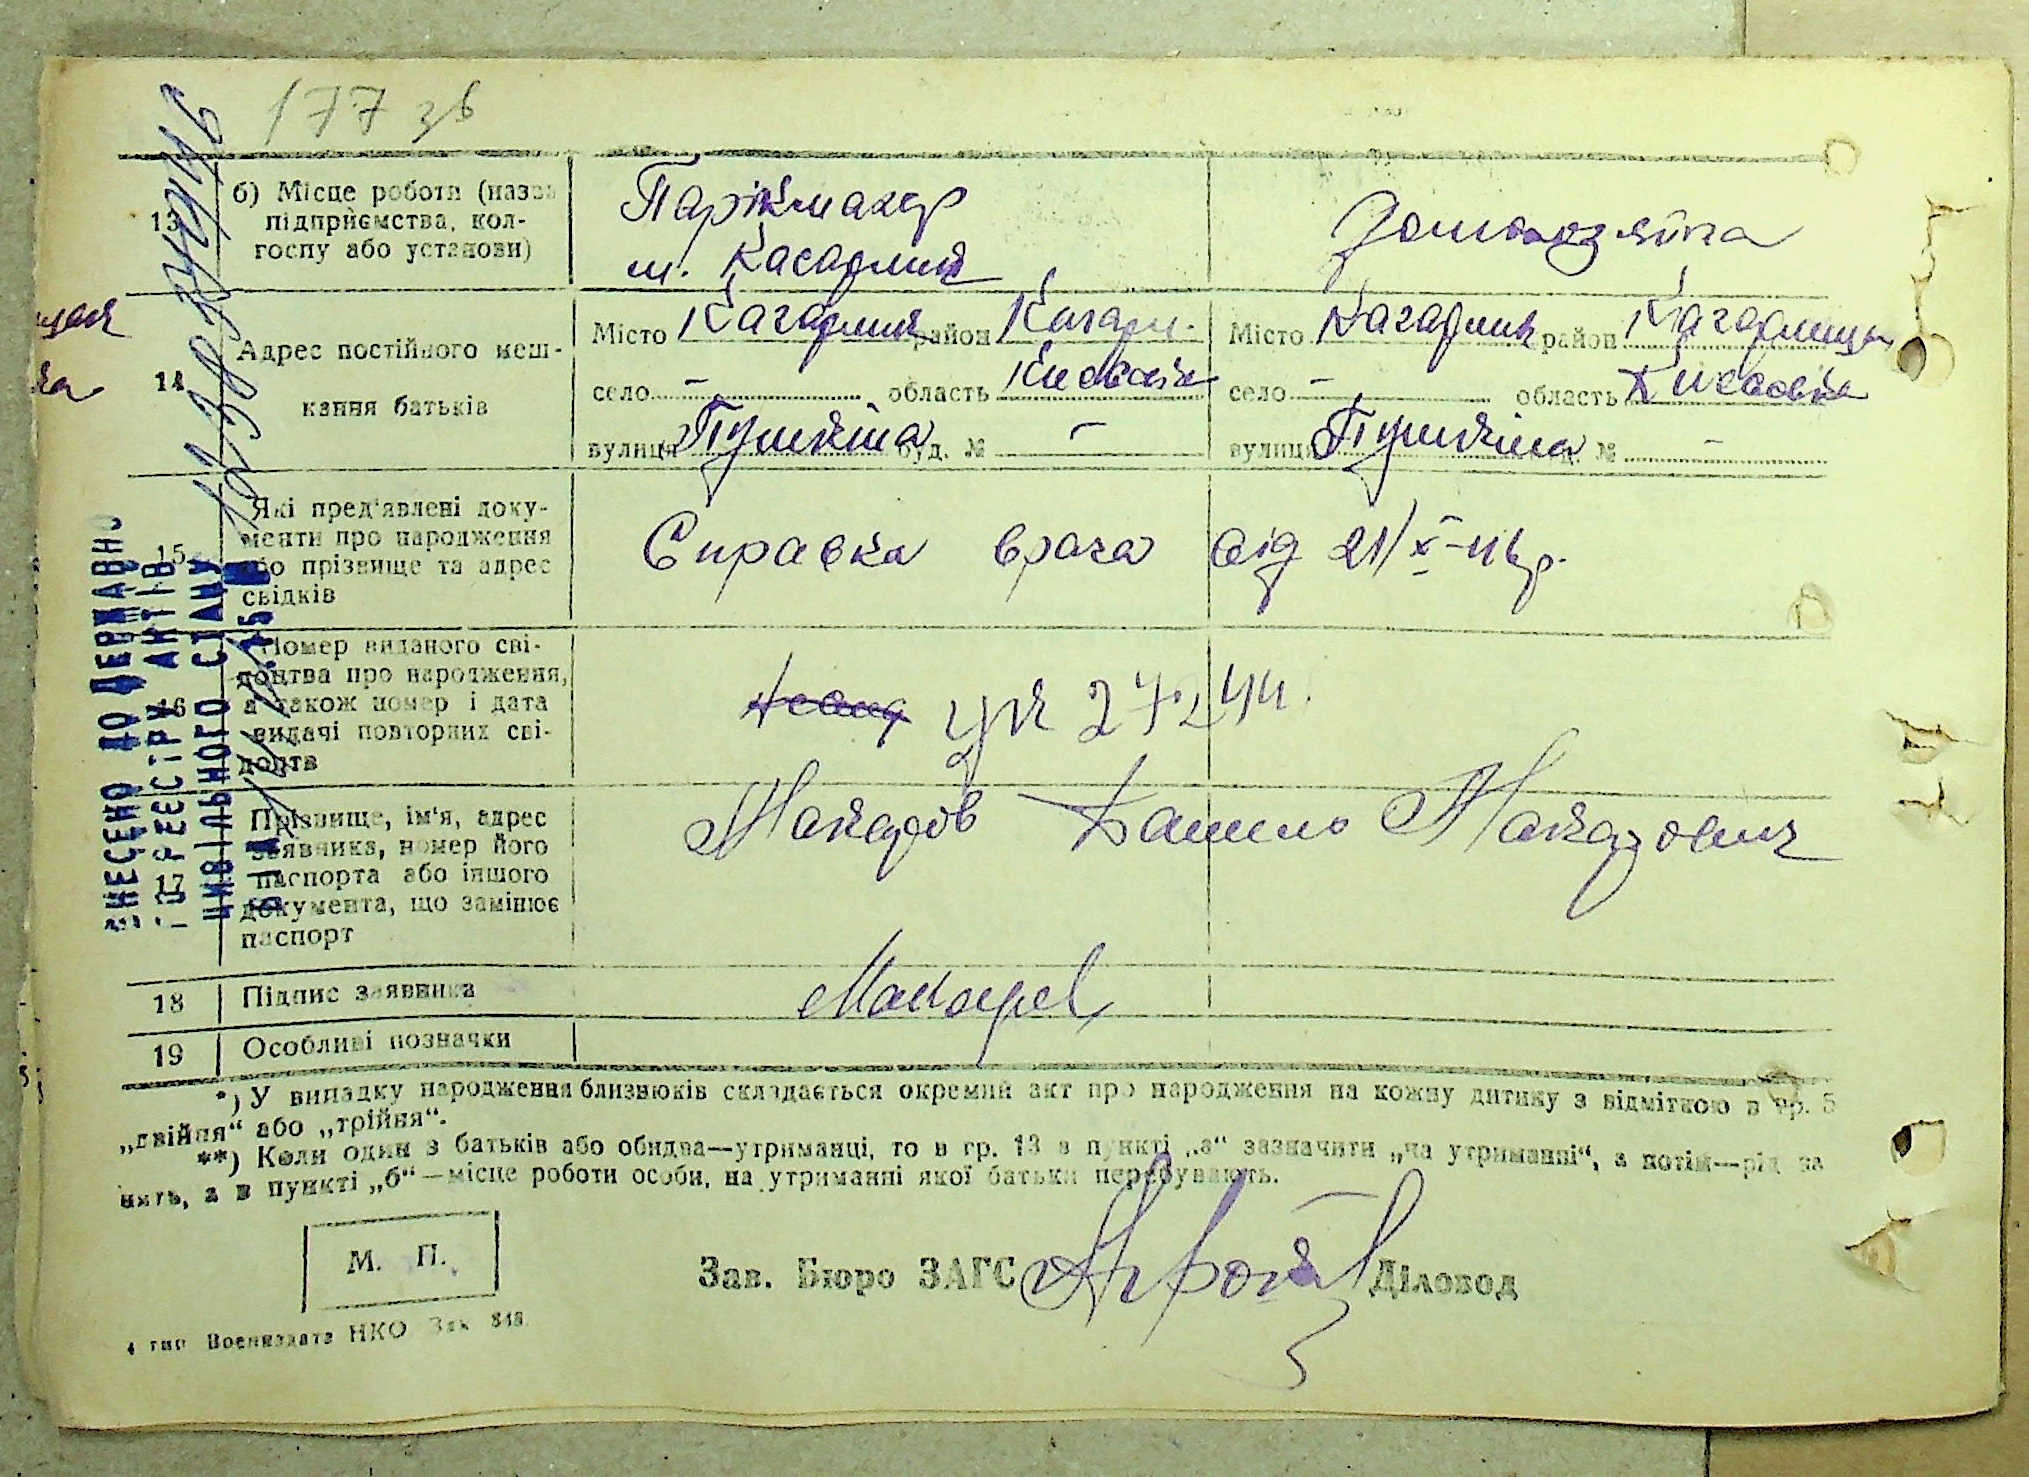 177 зв
13 б) Місце роботи (назва підприємства, колгоспу або установи)
Парікмахер
м. Кагарлик
Домохозяйка
14 Адрес постійного мешкання батьків
Місто Кагарлик район Кагарл.
село – область Київська
вулиця Пушкіна буд. № –
Місто Кагарлик район Кагарлицьк
село – область Київська
вулиця Пушкіна буд. № –
15 Які пред'явлені документи про народження або прізвище та адрес свідків
Справка врача від 21/X-
16 Номер виданого свідоцтва про народження, а також номер і дата видачі повторних свідоцтв
17 Прізвище, ім'я, адрес заявника, номер його паспорта або іншого документа, що замінює паспорт
Макаров Данило Макарович
18 Підпис заявника
Макаров
19 Особливі позначки
*) У випадку народження близнюків складається окремий акт про народження на кожну дитину з відміткою в гр. 5
„двійня“ або „трійня“.
**) Коли один з батьків або обидва—утриманці, то в гр. 13 в пункті „а“ зазначити „на утриманні“, а потім—рід за
нять, а в пункті „б“ — місце роботи особи, на утриманні якої батьки перебувають.
М. П.
Зав. Бюро ЗАГС
Діловод
4 тип Воениздата НКО Зак. 848
ВНЕСЕНО ДО ДЕРЖАВНО
ГО РЕЄСТРУ АКТІВ
ЦИВІЛЬНОГО СТАНУ